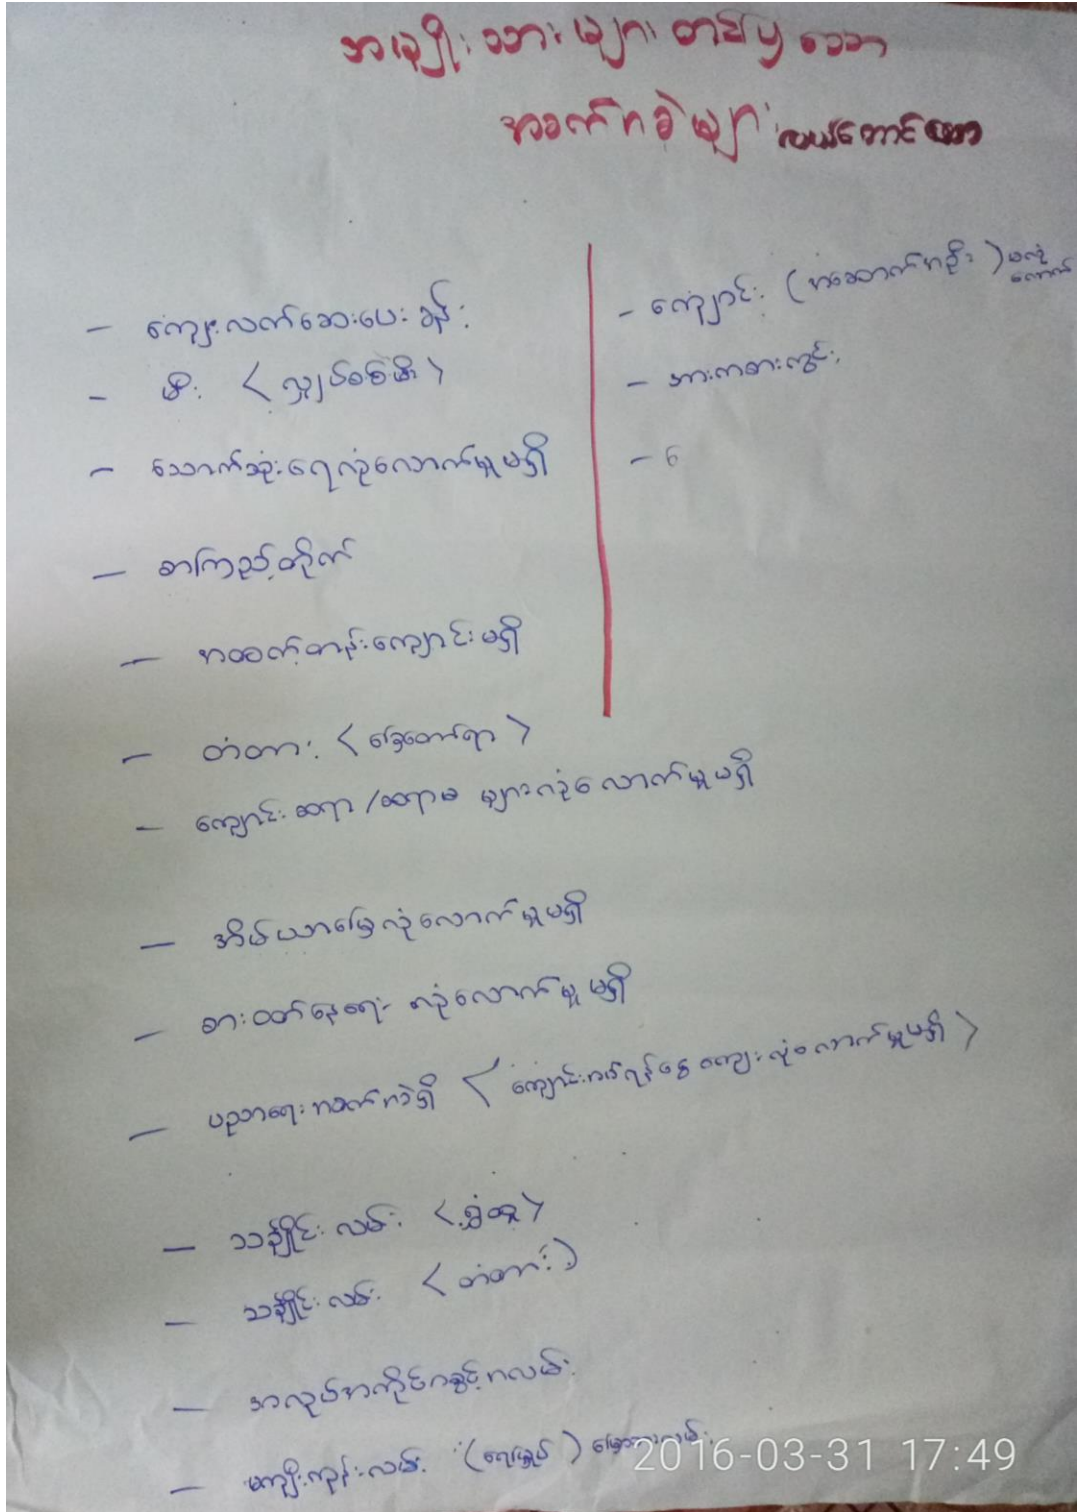 အမျိုးသားများ တင်ပြသော
အခက်အခဲများ
- ကျေးလက်ဆေးပေးခန်း
- မီး <လျှပ်စစ်မီး>
- သောက်သုံးရေလုံလောက်မှုမရှိ
- စာကြည့်တိုက်
- အထက်တန်းကျောင်းမရှိ
- တံတား <ချွေတော်ရာ>
- ကျောင်းဆရာ/ဆရာမ များလုံလောက်မှုမရှိ
- အိမ်ယာမြေလုံလောက်မှုမရှိ
- စားဝတ်နေရေး လုံလောက်မှု မရှိ
- ပညာရေးအခက်အခဲရှိ < ငွေကျေးလုံလောက်မှုမရှိ >
- သင်္ချိုင်းလမ်း
- သင်္ချိုင်းလမ်း <တံတား>
- အလုပ်အကိုင်အခွင့်အလမ်း
- လမ်း
- ကျောင်း (အဆောက်အဦး) မလုံလောက်
- အားကစားကွင်း
- ေ
2016-03-31 17:49